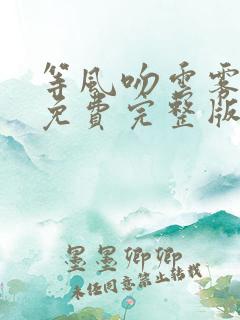 等风吻云雾
免费完整版
墨墨卿卿
未经同意禁止转载